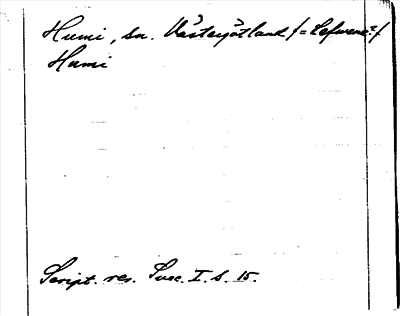 Humi, sn. Västergötland /=Lefvene?/
Humi
Script. rer. Suec. I. s. 15.